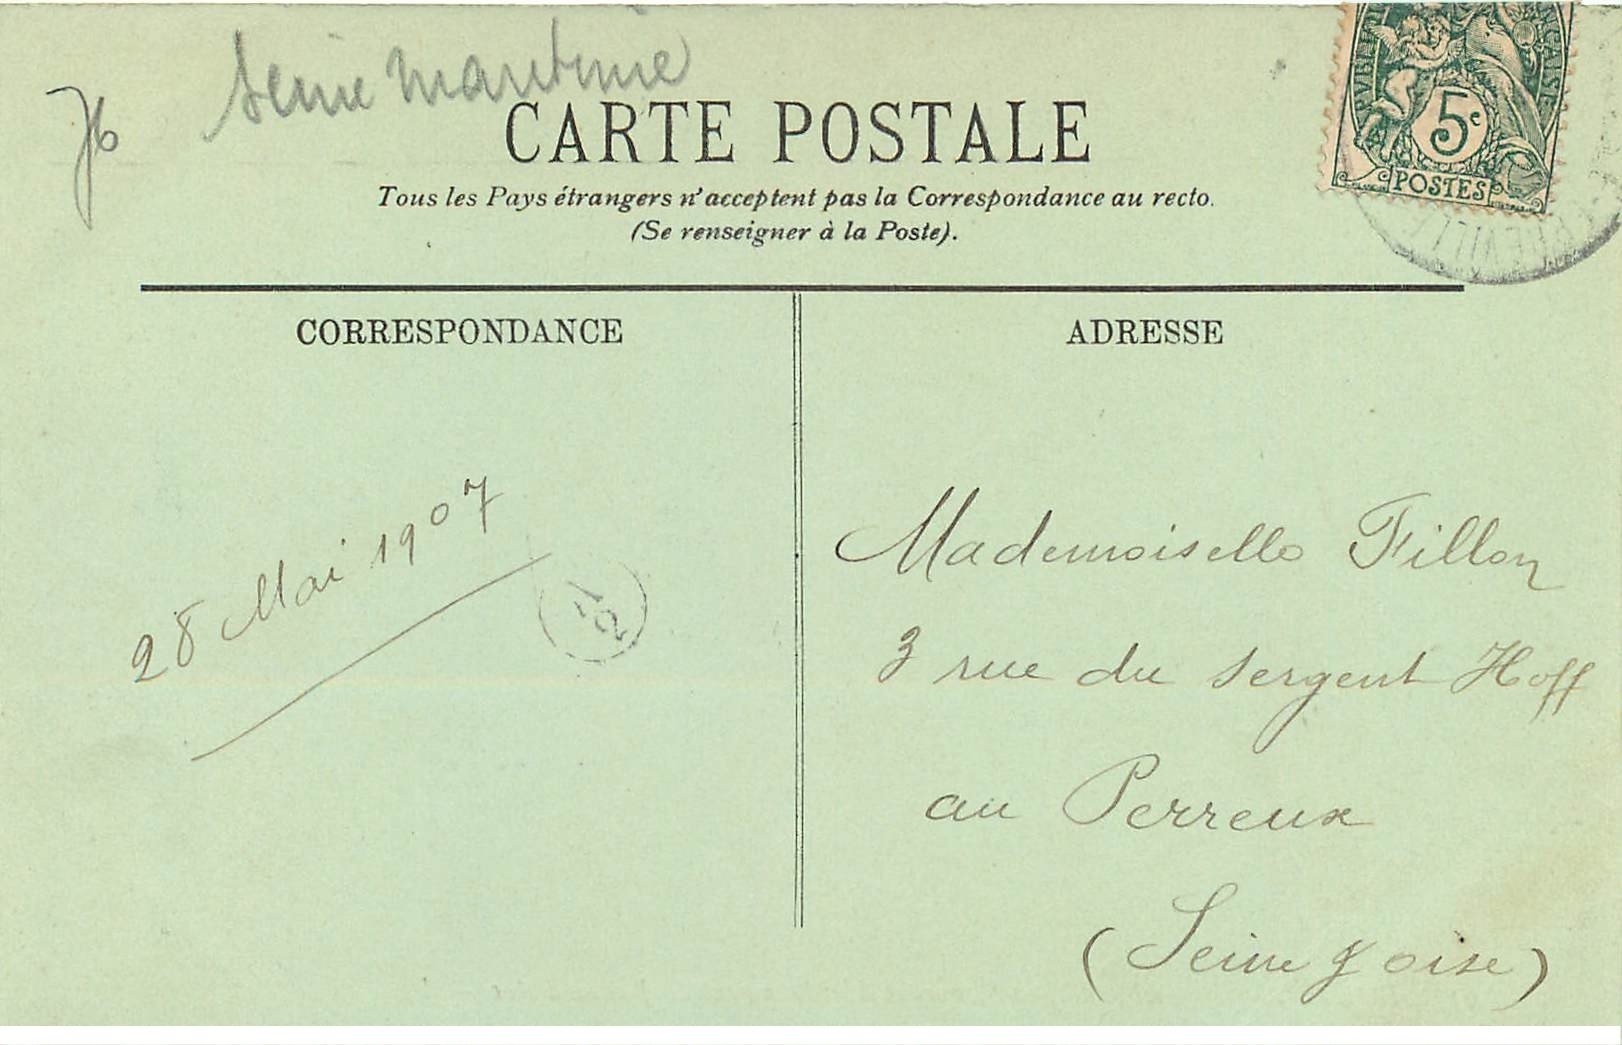 76
Seine maritime
CARTE POSTALE
Tous les Pays étrangers n'acceptent pas la Correspondance au recto.
(Se renseigner à la Poste).
5c
POSTES
CORRESPONDANCE
ADRESSE
28 Mai 1907
Mademoiselle Fillon
3 rue du Sergent Hoff
au Perreux
(Seine & oise)